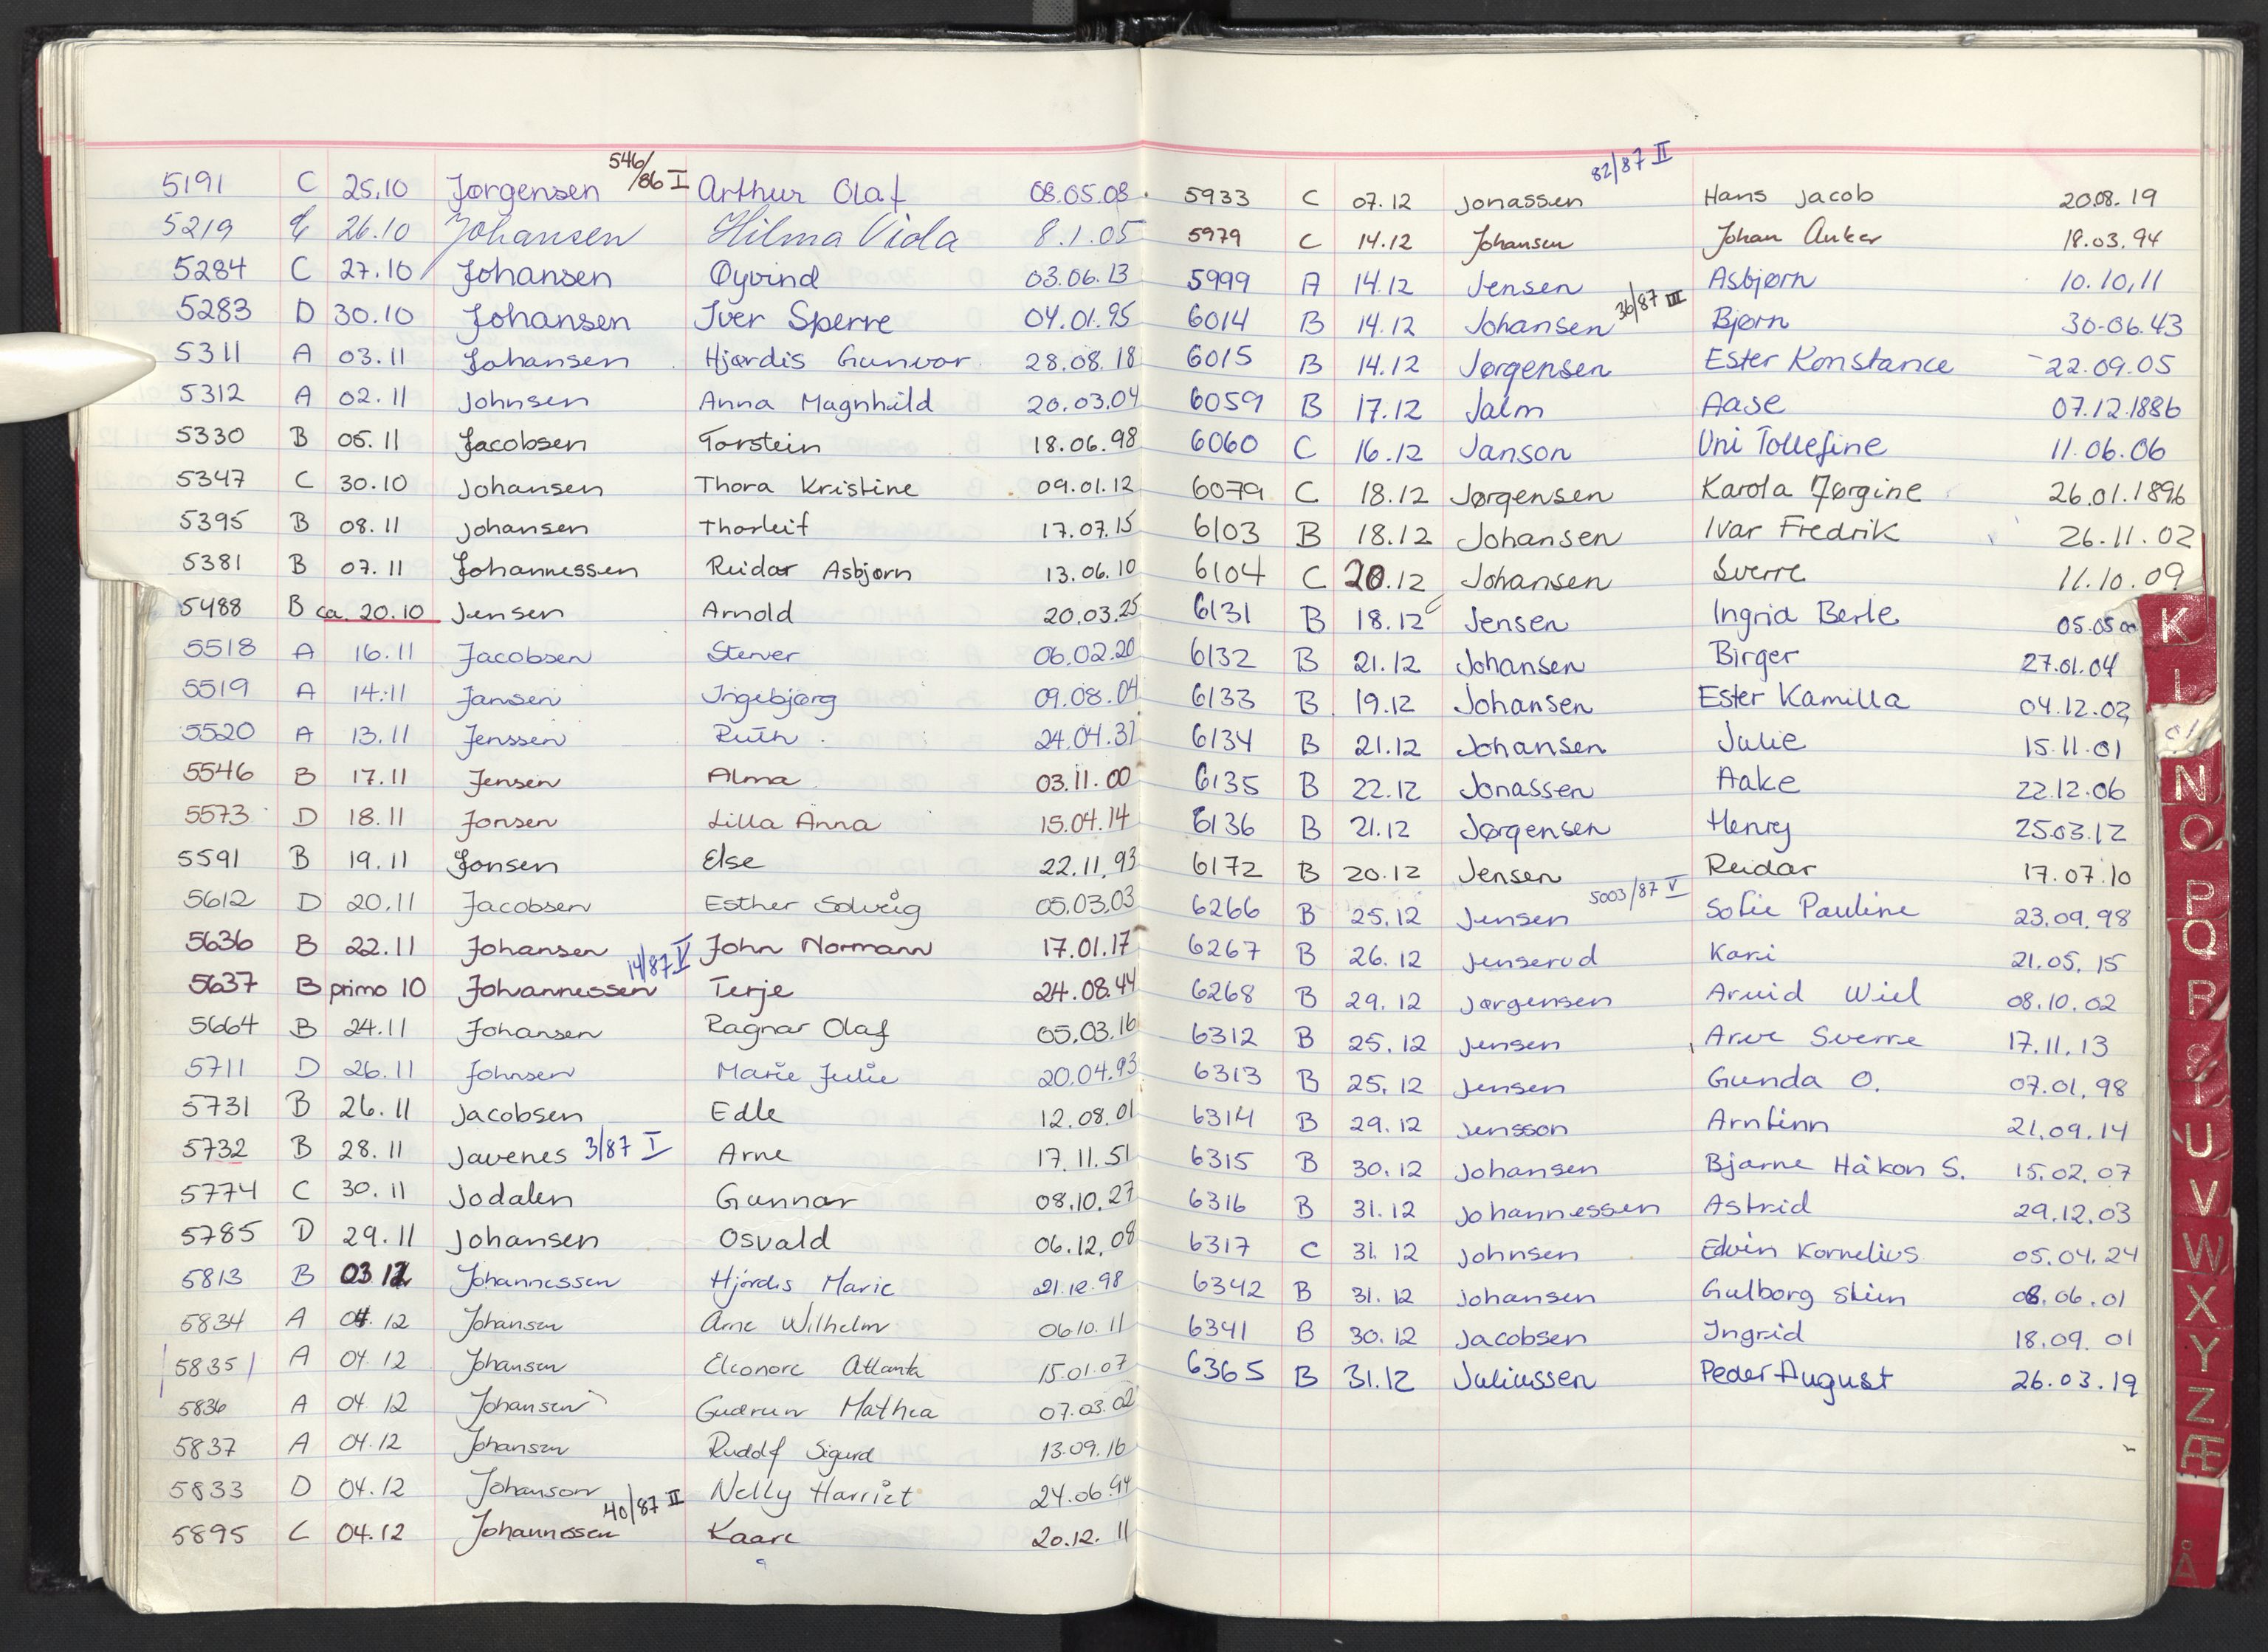 546/86 I
5191 C 25.10 Jørgensen Arthur Olaf 08.05.08
5219 C 26.10 Johansen Hilma Viola 8.1.05
5284 C 27.10 Johansen Øyvind 03.06.13
5283 D 30.10 Johansen Iver Sperre 04.01.95
5311 A 03.11 Johansen Hjørdis Gunvor 28.08.18
5312 A 02.11 Johnsen Anna Magnhild 20.03.04
5330 B 05.11 Jacobsen Torstein 18.06.98
5347 C 30.10 Johansen Thora Kristine 09.01.12
5395 B 08.11 Johansen Thorleif 17.07.15
5381 B 07.11 Johannessen Reidar Asbjørn 13.06.10
5488 B ca. 20.10 Jensen Arnold 20.03.25
5518 A 16.11 Jacobsen Stener 06.02.20
5519 A 14.11 Jansen Ingebjørg 09.08.04
5520 A 13.11 Jenssen Ruth 24.04.31
5546 B 17.11 Jensen Alma 03.11.00
5573 D 18.11 Jonsen Lilla Anna 15.04.14
5591 B 19.11 Jonsen Else 22.11.93
5612 D 20.11 Jacobsen Esther Solveig 05.03.03
5636 B 22.11 Johansen John Normann 17.01.17
14/87 V
5637 B primo 10 Johannessen Terje 24.08.44
5664 B 24.11 Johansen Ragnar Olaf 05.03.16
5711 D 26.11 Johnsen Marie Julie 20.04.93
5731 B 26.11 Jacobsen Edle 12.08.01
5732 B 28.11 Javenes 3/87 I Arne 17.11.51
5774 C 30.11 Jodalen Gunnar 08.10.27
5785 D 29.11 Johansen Osvald 06.12.08
5813 B 03 12 Johannessen Hjördis Marie 21.12.98
5834 A 04.12 Johansen Arne Wilhelm 06.10.11
5835 A 04.12 Johansen Eleonore Atlanta 15.01.07
5836 A 04.12 Johansen Gudrun Mathea 07.03.02
5837 A 04.12 Johansen Rudolf Sigurd 13.09.16
5833 D 04.12 Johanson Nelly Harriet 24.06.94
40/87 II
5895 C 04.12 Johannessen Kaare 20.12.11
82/87 II
5933 C 07.12 Jonassen Hans Jacob 20.08.19
5979 C 14.12 Johansen Johan Anker 18.03.94
5999 A 14.12 Jensen Asbjørn 10.10.11
36/87 III
6014 B 14.12 Johansen Bjørn 30-06.43
6015 B 14.12 Jørgensen Ester Konstance 22.09.05
6059 B 17.12 Jalm Aase 07.12.1886
6060 C 16.12 Janson Uni Tollefine 11.06.06
6079 C 18.12 Jørgensen Karola Jørgine 26.01.1896
6103 B 18.12 Johansen Ivar Fredrik 26.11.02
6104 C 20.12 Johansen Sverre 11.10.09
6131 B 18.12 Jensen Ingrid Berle 05.05
6132 B 21.12 Johansen Birger 27.01.04
6133 B 19.12 Johansen Ester Kamilla 04.12.02
6134 B 21.12 Johansen Julie 15.11.01
6135 B 22.12 Jonassen Aake 22.12.06
6136 B 21.12 Jørgensen Henry 25.03.12
6172 B 20.12 Jensen Reidar 17.07.10
5003/87 V
6266 B 25.12 Jensen Sofie Pauline 23.09.98
6267 B 26.12 Jenserud Kari 21.05.15
6268 B 29.12 Jørgensen Arvid Wiel 08.10.02
6312 B 25.12 Jensen Arve Sverre 17.11.13
6313 B 25.12 Jensen Gunda O. 07.01.98
6314 B 29.12 Jensson Arnfinn 21.09.14
6315 B 30.12 Johansen Bjarne Håkon S. 15.02.07
6316 B 31.12 Johannessen Astrid 29.12.03
6317 C 31.12 Johnsen Edvin Kornelius 05.04.24
6342 B 31.12 Johansen Gulborg Stien 08.06.01
6341 B 30.12 Jacobsen Ingrid 18.09.01
6365 B 31.12 Juliussen Peder August 26.03.19
K
L
N
O
P
Q
R
S
T
U
V
W
X
Y
Z
Æ
Å